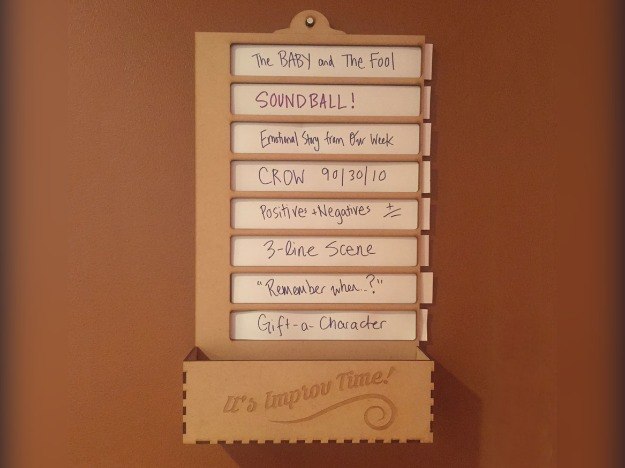 The BABY and The Fool
SOUNDBALL!
Emotional Story from Our Week
CROW 90/30/10
Positives + Negatives +/-
3-line Scene
"Remember when..?"
Gift-a-Character
It's Improv Time!